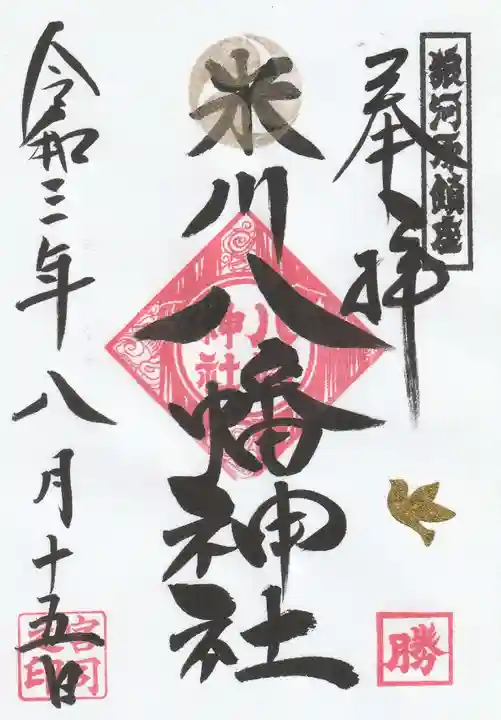 狼河原鎮座
奉拝
米川八幡神社
八
神社
勝
令和三年八月十五日
宮司
之印